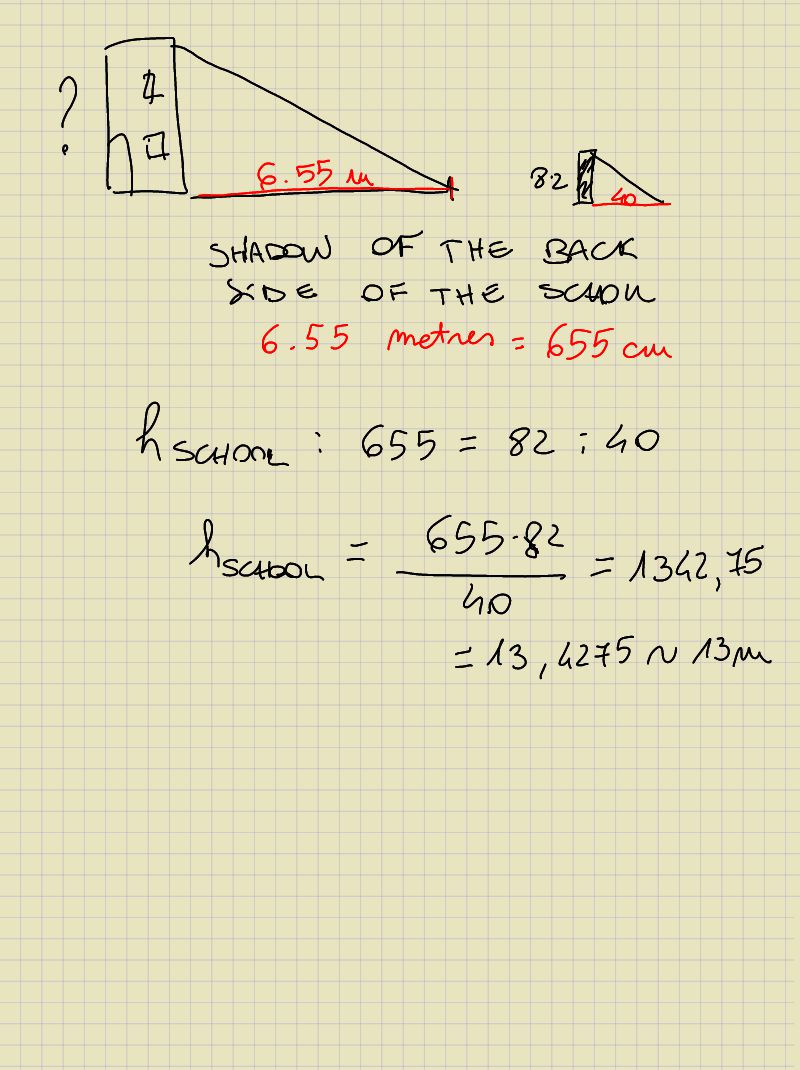 ?
6.55 m
82
40
SHADOW OF THE BACK
SIDE OF THE SCHOOL
6.55 metres = 655 cm
h SCHOOL : 655 = 82 : 40
h SCHOOL = 655·82 / 40 = 1342,75
= 13,4275 ~ 13m